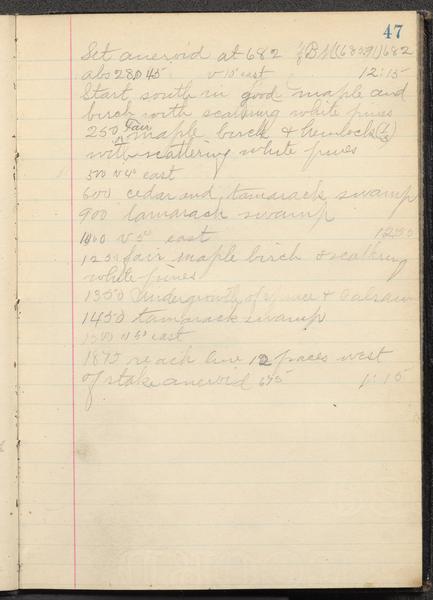 47
Set aneroid at 682 BM 682
abs 28.045 v 15 east 12:15
Start south in good maple and
birch with scattering white pines
250 Fair maple birch & hemlock
with scattering white pines
500 v 4° east
600 cedar and tamarack swamp
900 tamarack swamp
1000 v 5° east 12:50
1250 fair maple birch & scattering
white pines
1350 Undergrowth of spruce & balsam
1450 tamarack swamp
1500 v 5° east
1875 reach line 12 paces west
of stake aneroid 675 1:15